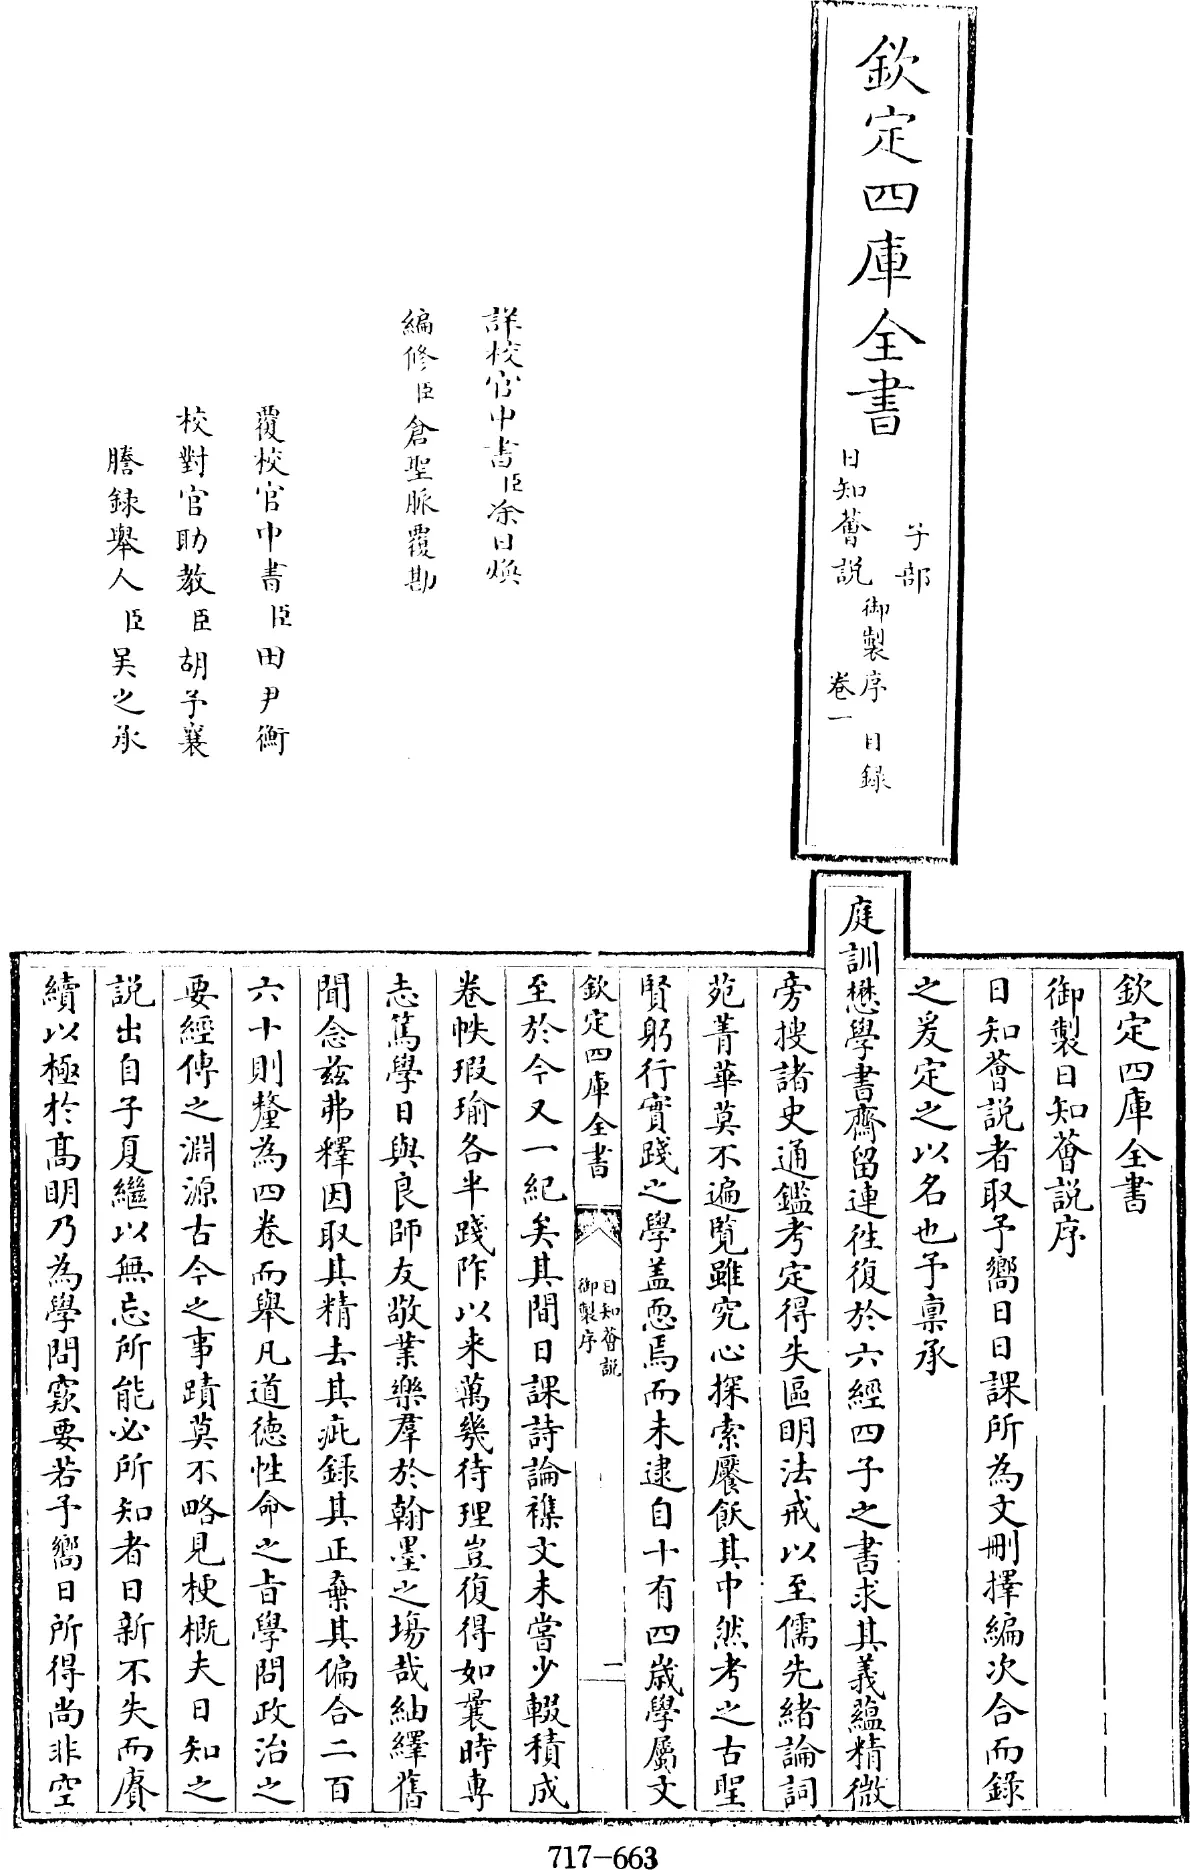 欽定四庫全書
子部
日知薈説
御製序 目録
卷一
詳校官中書臣涂日煥
編修臣倉聖脈覆勘
覆校官中書臣田尹衡
校對官助教臣胡予襄
謄錄舉人臣吴之承
欽定四庫全書
御製日知薈説序
日知薈説者取予嚮日日課所為文刪擇編次合而録
之爰定之以名也予稟承
庭訓懋學書齋留連徃復於六經四子之書求其義蘊精微
旁搜諸史通鑑考定得失區明法戒以至儒先緒論詞
苑菁華莫不遍覽雖究心探索饜飫其中然考之古聖
賢躬行實踐之學盖恧焉而未逮自十有四嵗學屬文
欽定四庫全書
日知薈説
御製序
二
至於今又一紀矣其間日課詩論襍文未嘗少輟積成
卷帙瑕瑜各半踐阼以来萬幾待理豈復得如曩時専
志篤學日與良師友敬業樂羣於翰墨之塲哉紬繹舊
聞念兹弗釋因取其精去其疵録其正棄其偏合二百
六十則釐為四卷而舉凡道德性命之旨學問政治之
要經傳之淵源古今之事蹟莫不略見梗概夫日知之
説出自子夏繼以無忘所能必所知者日新不失而賡
續以極於髙明乃為學問窽要若予嚮日所得尚非空
717-663